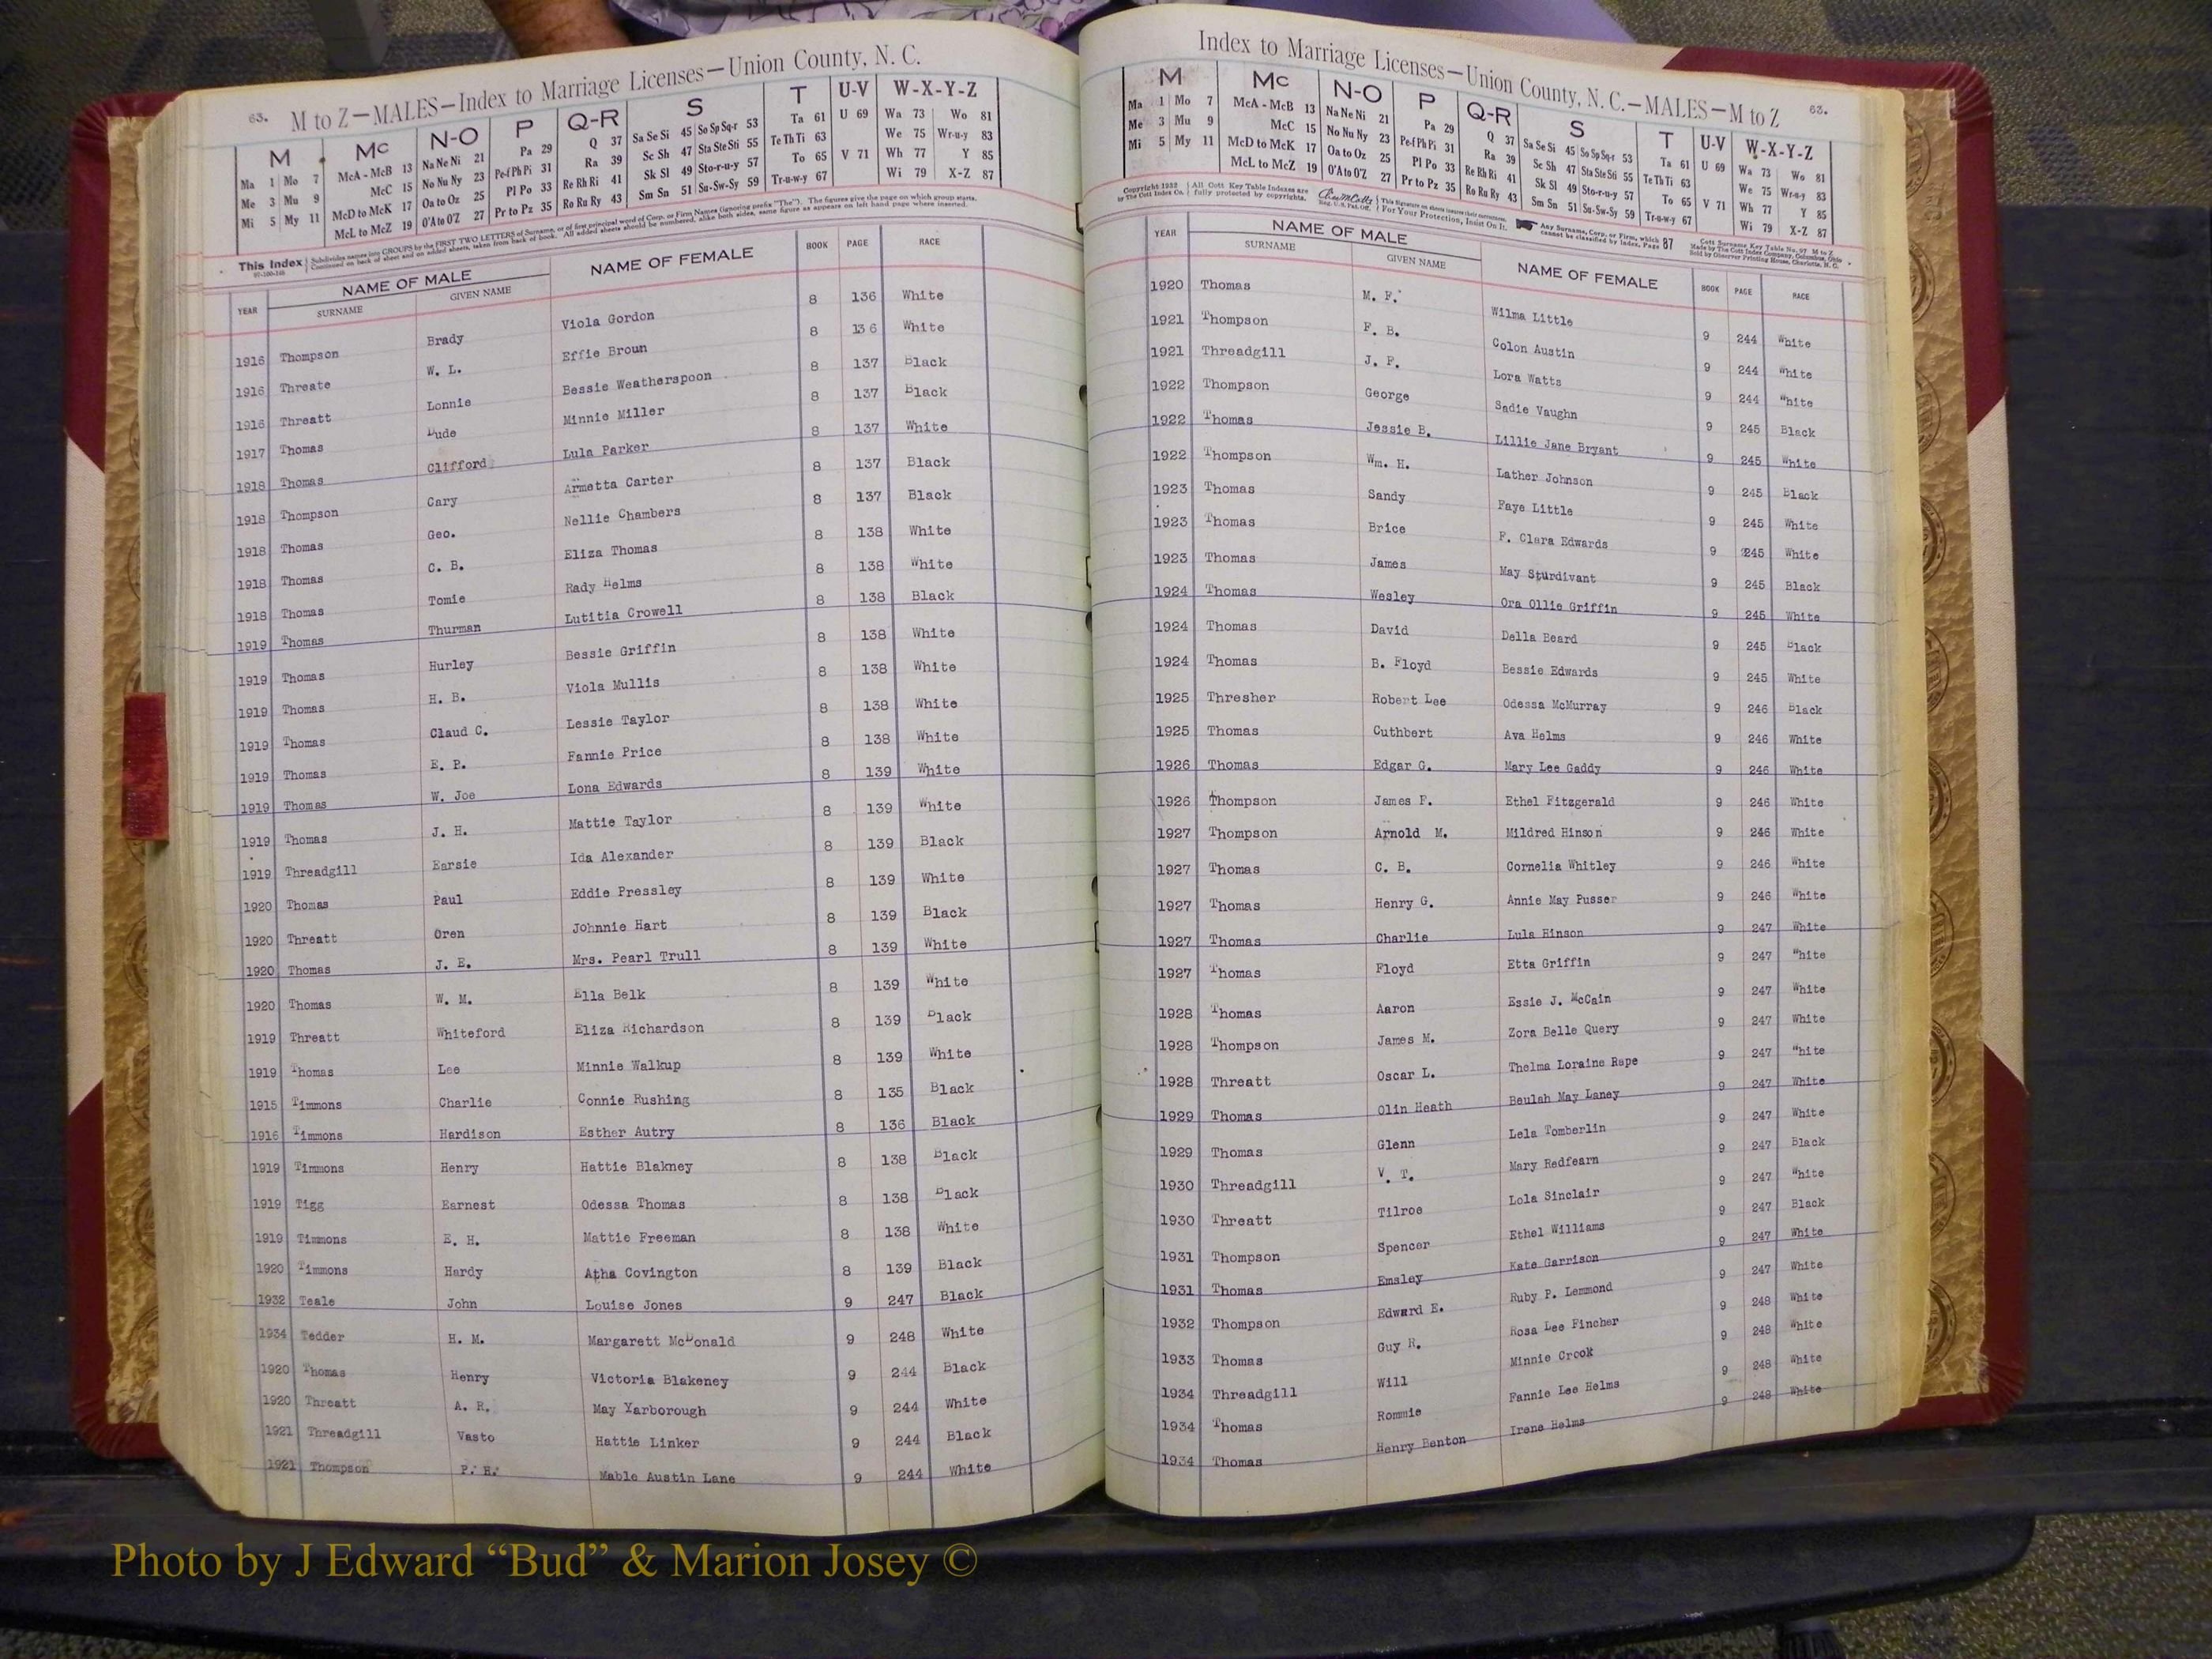 63. M to Z—MALES—Index to Marriage Licenses—Union County, N. C.
M Mc N-O P Q-R S T U-V W-X-Y-Z
Ma 1 Mo 7 McA - McB 13 Na Ne Ni 21 Pa 29 Q 37 Sa Se Si 45 So Sp Sq-r 53 Ta 61 U 69 Wa 73 Wo 81
Me 3 Mu 9 McC 15 No Nu Ny 23 Pe-f Ph Pi 31 Ra 39 Sc Sh 47 Sta Ste Sti 55 Te Th Ti 63 We 75 Wr-u-y 83
Mi 5 My 11 McD to McK 17 Oa to Oz 25 Pl Po 33 Re Rh Ri 41 Sk Sl 49 Sto-r-u-y 57 To 65 V 71 Wh 77 Y 85
McL to McZ 19 O'A to O'Z 27 Pr to Pz 35 Ro Ru Ry 43 Sm Sn 51 Su-Sw-Sy 59 Tr-u-w-y 67 Wi 79 X-Z 87
This Index Subdivides names into GROUPS by the FIRST TWO LETTERS of Surname, or of first principal word of Corp. or Firm Names (ignoring prefix "The"). The figures give the page on which group starts.
Continued on back of sheet and on added sheets, taken from back of book. All added sheets should be numbered, alike both sides, same figure as appears on left hand page where inserted.
YEAR NAME OF MALE NAME OF FEMALE BOOK PAGE RACE
SURNAME GIVEN NAME
1916 Thompson Brady Viola Gordon 8 136 White
1916 Threate W. L. Effie Broun 8 136 White
1916 Threatt Lonnie Bessie Weatherspoon 8 137 Black
1917 Thomas Dude Minnie Miller 8 137 Black
1918 Thomas Clifford Lula Parker 8 137 White
1918 Thompson Cary Armetta Carter 8 137 Black
1918 Thomas Geo. Nellie Chambers 8 137 Black
1918 Thomas C. B. Eliza Thomas 8 138 White
1918 Thomas Tomie Rady Helms 8 138 White
1919 Thomas Thurman Lutitia Crowell 8 138 Black
1919 Thomas Hurley Bessie Griffin 8 138 White
1919 Thomas H. B. Viola Mullis 8 138 White
1919 Thomas Claud C. Lessie Taylor 8 138 White
1919 Thomas E. P. Fannie Price 8 138 White
1919 Thomas W. Joe Lona Edwards 8 139 White
1919 Thomas J. H. Mattie Taylor 8 139 White
1919 Threadgill Earsie Ida Alexander 8 139 Black
1920 Thomas Paul Eddie Pressley 8 139 White
1920 Threatt Oren Johnnie Hart 8 139 Black
1920 Thomas J. E. Mrs. Pearl Trull 8 139 White
1920 Thomas W. M. Ella Belk 8 139 White
1919 Threatt Whiteford Eliza Richardson 8 139 Black
1919 Thomas Lee Minnie Walkup 8 139 White
1915 Timmons Charlie Connie Rushing 8 135 Black
1916 Timmons Hardison Esther Autry 8 136 Black
1919 Timmons Henry Hattie Blakney 8 138 Black
1919 Tigg Earnest Odessa Thomas 8 138 Black
1919 Timmons E. H. Mattie Freeman 8 138 White
1920 Timmons Hardy Atha Covington 8 139 Black
1932 Teale John Louise Jones 9 247 Black
1934 Tedder H. M. Margarett McDonald 9 248 White
1920 Thomas Henry Victoria Blakeney 9 244 Black
1920 Threatt A. R. May Yarborough 9 244 White
1921 Threadgill Vasto Hattie Linker 9 244 Black
1921 Thompson P. H. Mable Austin Lane 9 244 White
Index to Marriage Licenses—Union County, N. C.—MALES—M to Z 63.
M Mc N-O P Q-R S T U-V W-X-Y-Z
Ma 1 Mo 7 McA - McB 13 Na Ne Ni 21 Pa 29 Q 37 Sa Se Si 45 So Sp Sq-r 53 Ta 61 U 69 Wa 73 Wo 81
Me 3 Mu 9 McC 15 No Nu Ny 23 Pe-f Ph Pi 31 Ra 39 Sc Sh 47 Sta Ste Sti 55 Te Th Ti 63 We 75 Wr-u-y 83
Mi 5 My 11 McD to McK 17 Oa to Oz 25 Pl Po 33 Re Rh Ri 41 Sk Sl 49 Sto-r-u-y 57 To 65 V 71 Wh 77 Y 85
McL to McZ 19 O'A to O'Z 27 Pr to Pz 35 Ro Ru Ry 43 Sm Sn 51 Su-Sw-Sy 59 Tr-u-w-y 67 Wi 79 X-Z 87
Copyright 1932 by The Cott Index Co. All Cott Key Table Indexes are fully protected by copyrights. Reg. U.S. Pat. Off. For Your Protection, Insist On It. Any Surname, Corp. or Firm, which cannot be classified by Index, Page 87
Cott Surname Key Table No. 97 M to Z
Made by The Cott Index Company, Columbus, Ohio
Sold by Observer Printing House, Charlotte, N. C.
YEAR NAME OF MALE NAME OF FEMALE BOOK PAGE RACE
SURNAME GIVEN NAME
1920 Thomas M. F. Wilma Little 9 244 White
1921 Thompson F. B. Colon Austin 9 244 White
1921 Threadgill J. P. Lora Watts 9 244 White
1922 Thompson George Sadie Vaughn 9 245 Black
1922 Thomas Jessie B. Lillie Jane Bryant 9 245 White
1922 Thompson Wm. H. Lather Johnson 9 245 Black
1923 Thomas Sandy Faye Little 9 245 White
1923 Thomas Brice F. Clara Edwards 9 245 White
1923 Thomas James May Sturdivant 9 245 Black
1924 Thomas Wesley Ora Ollie Griffin 9 245 White
1924 Thomas David Della Beard 9 245 Black
1924 Thomas B. Floyd Bessie Edwards 9 245 White
1925 Thresher Robert Lee Odessa McMurray 9 246 Black
1925 Thomas Cuthbert Ava Helms 9 246 White
1926 Thomas Edgar G. Mary Lee Gaddy 9 246 White
1926 Thompson James F. Ethel Fitzgerald 9 246 White
1927 Thompson Arnold M. Mildred Hinson 9 246 White
1927 Thomas C. B. Cornelia Whitley 9 246 White
1927 Thomas Henry G. Annie May Pusser 9 246 White
1927 Thomas Charlie Lula Hinson 9 247 White
1927 Thomas Floyd Etta Griffin 9 247 White
1928 Thomas Aaron Essie J. McCain 9 247 White
1928 Thompson James M. Zora Belle Query 9 247 White
1928 Threatt Oscar L. Thelma Loraine Rape 9 247 White
1929 Thomas Olin Heath Beulah May Laney 9 247 White
1929 Thomas Glenn Lela Tomberlin 9 247 White
1930 Threadgill V. T. Mary Redfearn 9 247 Black
1930 Threatt Tilroe Lola Sinclair 9 247 White
1931 Thompson Spencer Ethel Williams 9 247 Black
1931 Thomas Emsley Kate Garrison 9 247 White
1932 Thompson Edward E. Ruby P. Lemmond 9 247 White
1933 Thomas Guy R. Rosa Lee Fincher 9 248 White
1934 Threadgill Will Minnie Crook 9 248 White
1934 Thomas Rommie Fannie Lee Helms 9 248 White
1934 Thomas Henry Benton Irene Helms 9 248 White
Photo by J Edward “Bud” & Marion Josey ©